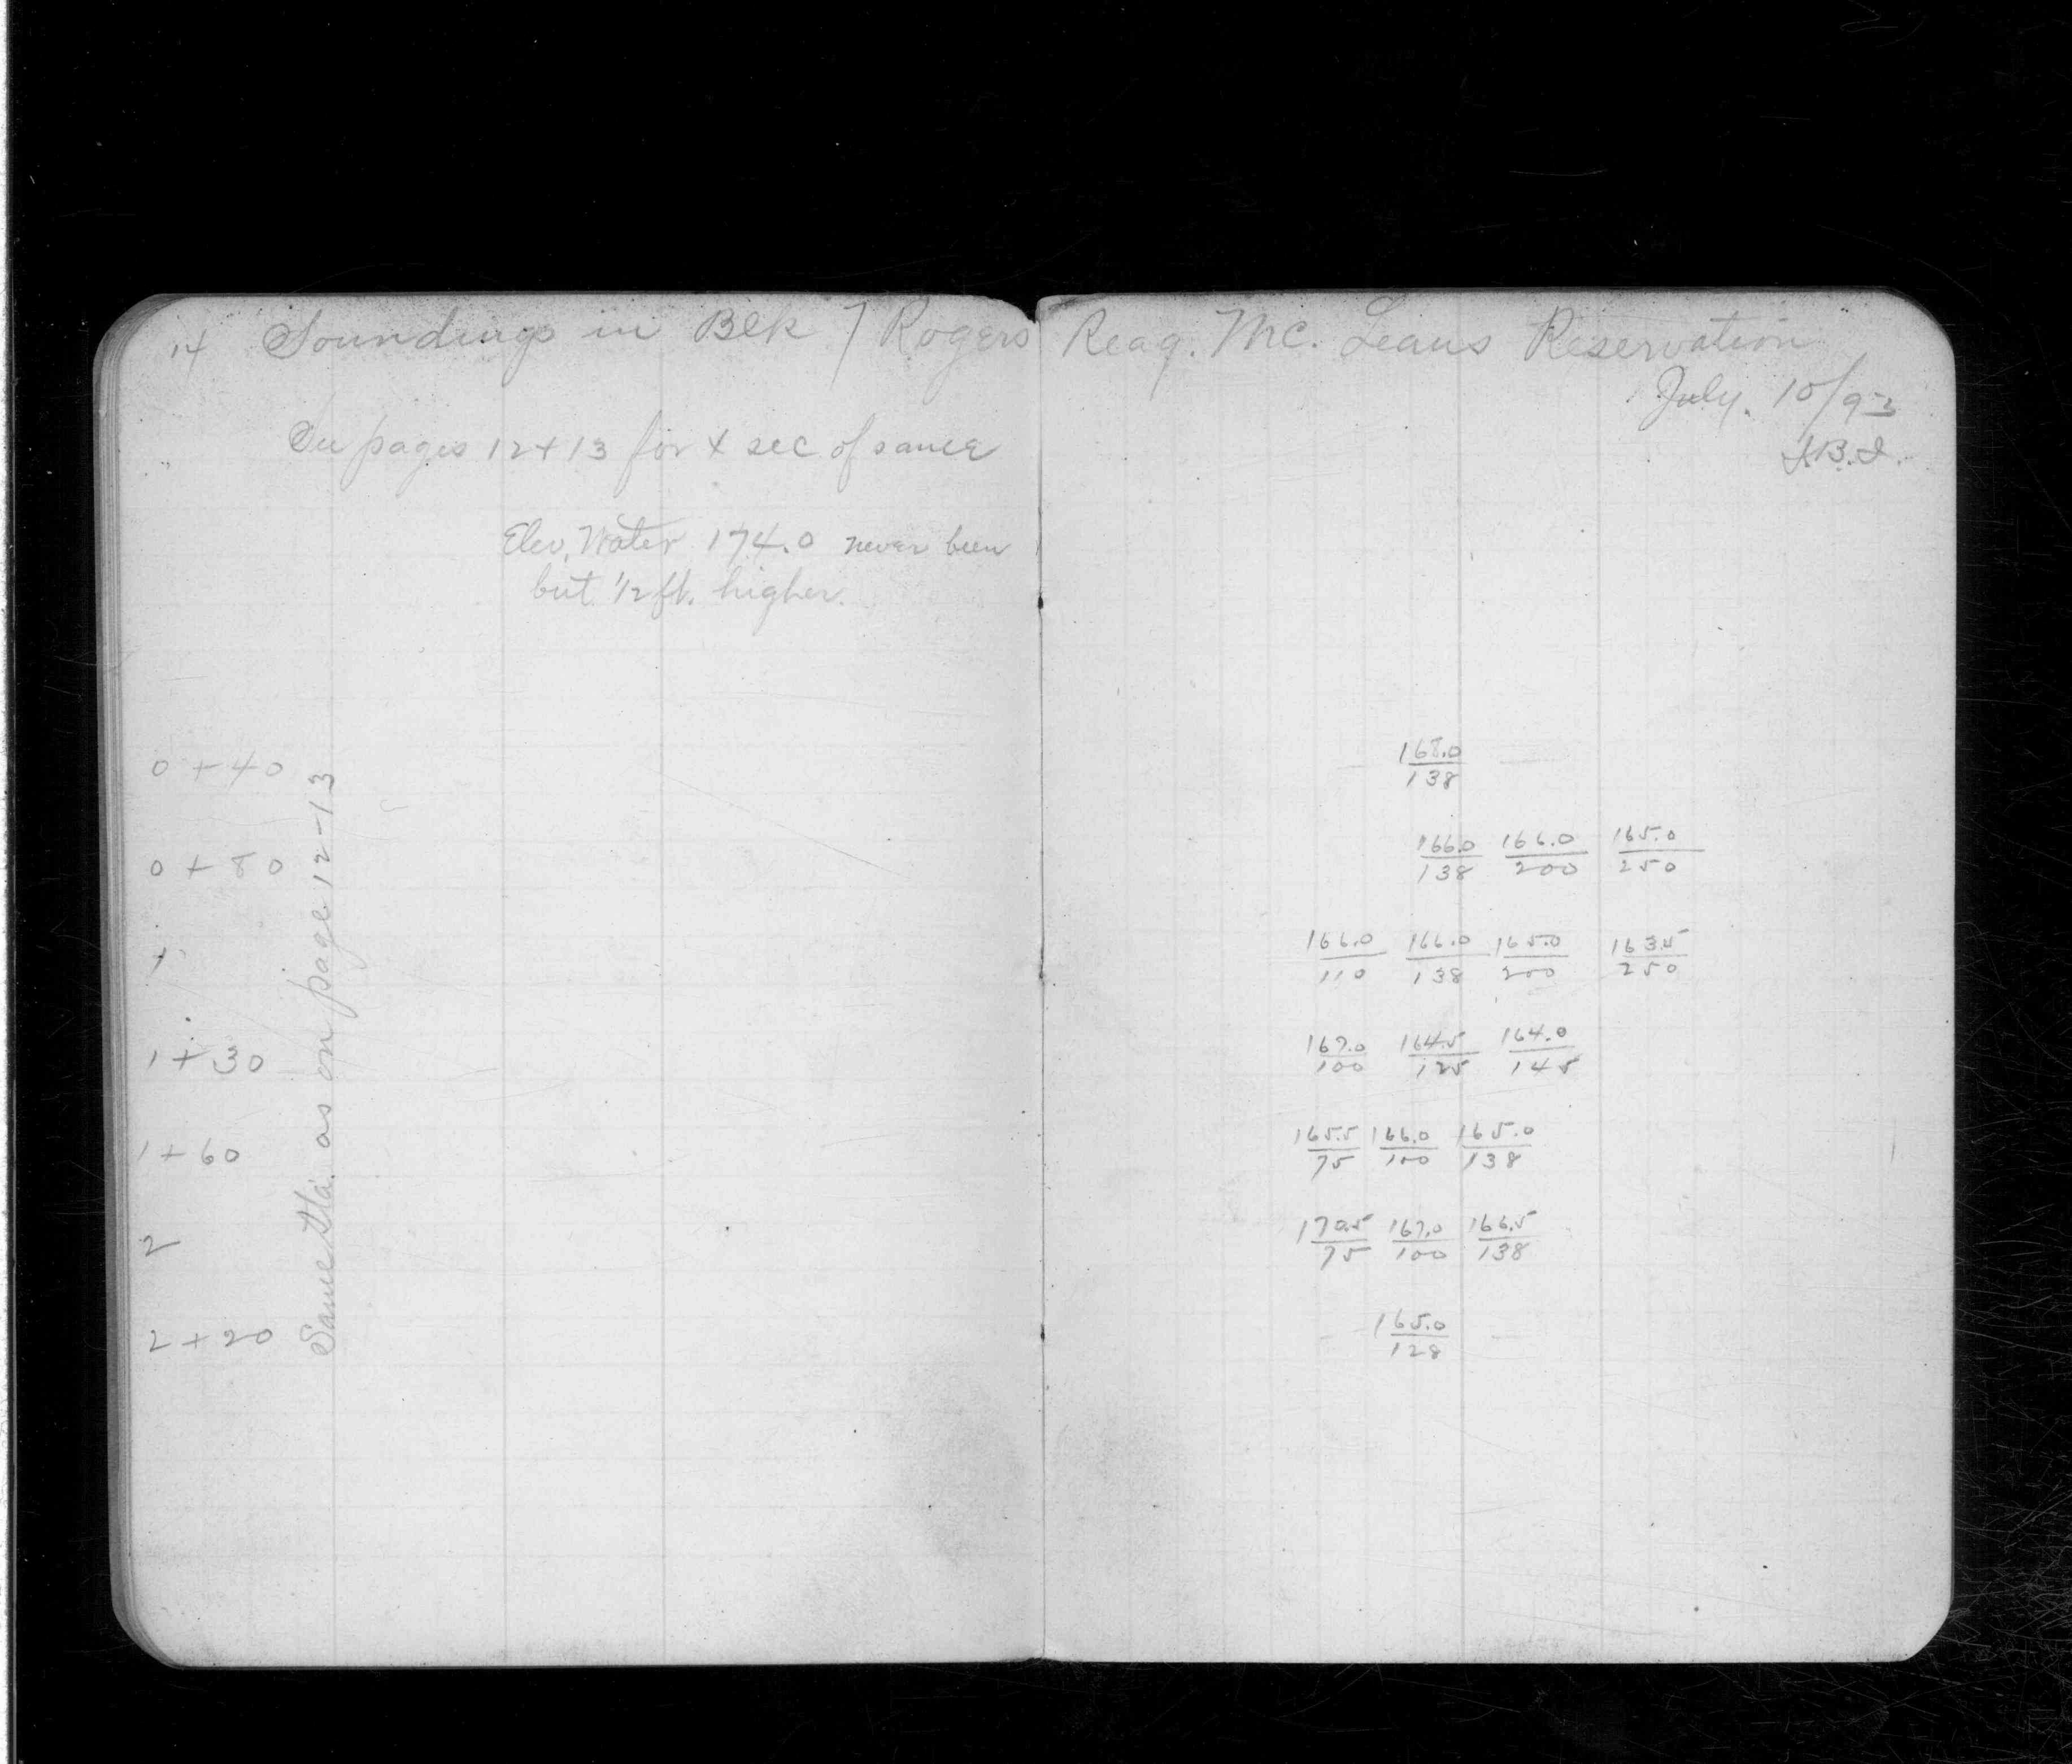 14 Soundings in Blk 7 Rogers Reaq. Mc. Leans Reservation
July. 10/93
See pages 12+13 for X sec of same
Elev. Water 174.0 never been
but 1/2 ft. higher.
Same Sta. as on page 12-13
0+40 168.0/138
0+80 166.0/138 166.0/200 165.0/250
1 166.0/110 166.0/138 165.0/200 163.5/250
1+30 167.0/100 164.5/125 164.0/145
1+60 165.5/75 166.0/100 165.0/138
2 170.5/75 167.0/100 166.5/138
2+20 165.0/128